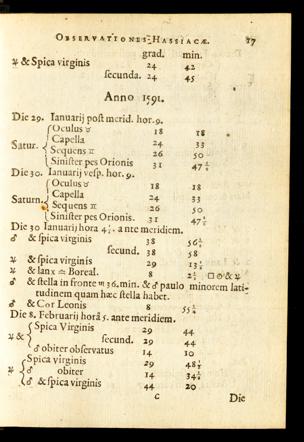 OBSERVATIONES HASSIACÆ. 17
grad. min.
♃ & Spica virginis 24 42
secunda. 24 45
Anno 1591.
Die 29. Ianuarij post merid. hor. 9.
Satur. Oculus ♉ 18 18
Capella 24 33
Sequens ♊ 26 50
Sinister pes Orionis 31 47
Die 30. Ianuarij vesp. hor. 9.
Saturn. Oculus ♉ 18 18
Capella 24 33
Sequens ♊ 26 50
Sinister pes Orionis. 31 47
Die 30 Ianuarij hora 4 ante meridiem.
♂ & spica virginis 38 56
secund. 38 58
♃ & spica virginis 29 13
♃ & lanx ♎ Boreal. 8 2 □ ♂ & ♃
♂ & stella in fronte ♏ 36. min. & ♂ paulo minorem lati-
tudinem quam hæc stella habet.
♂ & Cor Leonis 8 55
Die 8. Februarij horâ 5. ante meridiem.
♃ & Spica Virginis 29 44
secund. 29 44
♂ obiter observatus 14 10
♃ Spica virginis 29 48
♂ obiter 14 34
♂ & spica virginis 44 20
C Die